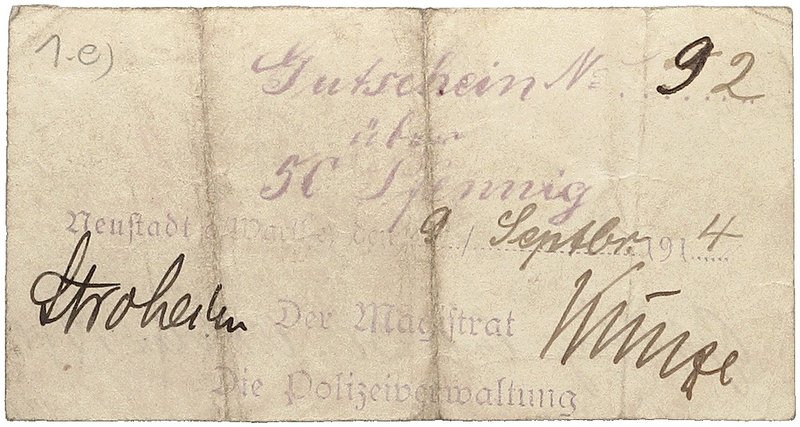 1.e)
Gutschein № 92
über
50 Pfennig
Neustadt a/Warthe, den 9 / Septbr. 1914
Stroheim
Der Magistrat
Die Polizeiverwaltung